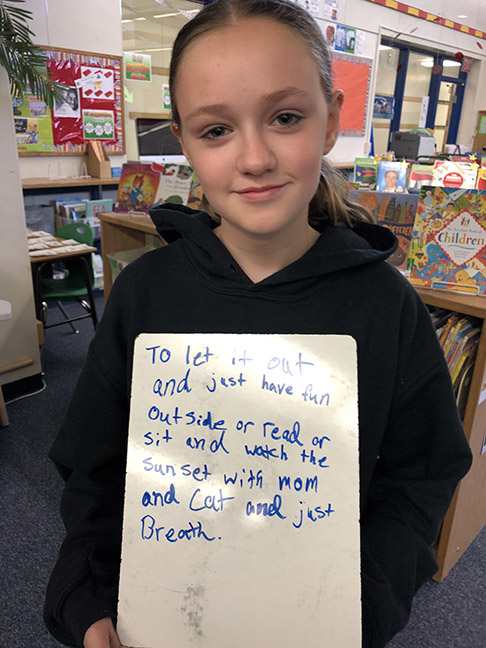 To let it out
and just have fun
outside or read or
sit and watch the
sunset with mom
and Cat and just
Breath.
Children